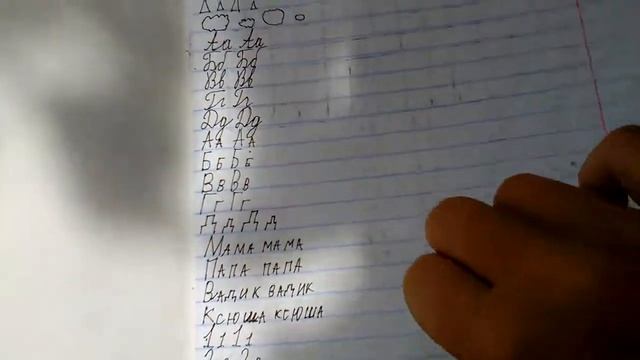 Аа Аа
Бб Бб
Вв Вв
Гг Гг
Дд Дд
Аа Аа
Бб Бб
Вв Вв
Гг Гг
Дд Дд
Мама мама
Папа папа
Вадик вадик
Ксюша ксюша
1111